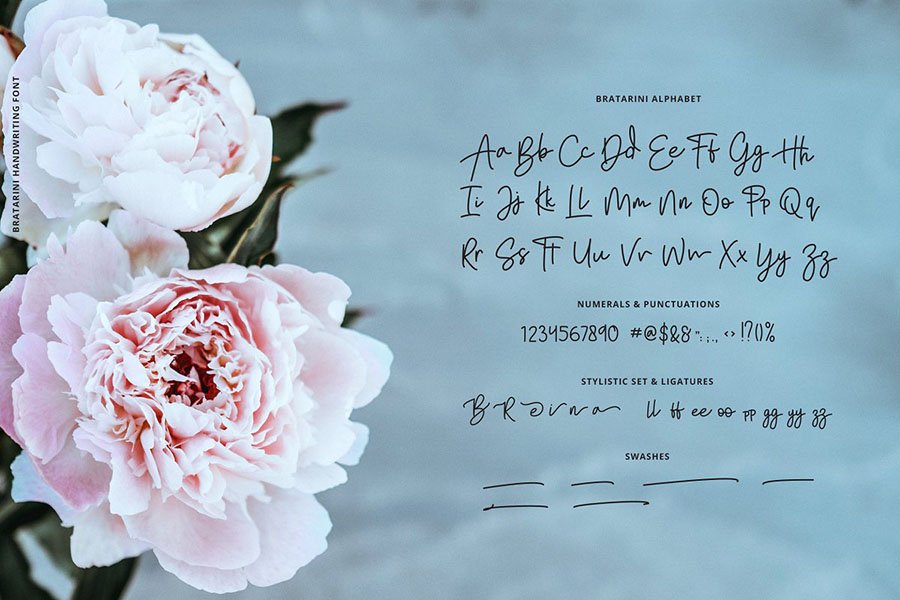 BRATARINI HANDWRITING FONT
BRATARINI ALPHABET
Aa Bb Cc Dd Ee Ff Gg Hh
Ii Jj Kk Ll Mm Nn Oo Pp Qq
Rr Ss Tt Uu Vv Ww Xx Yy Zz
NUMERALS & PUNCTUATIONS
1234567890 #@$&8 ";:., <> !?()%
STYLISTIC SET & LIGATURES
B R a i r n a ll tt ee oo pp gg yy zz
SWASHES